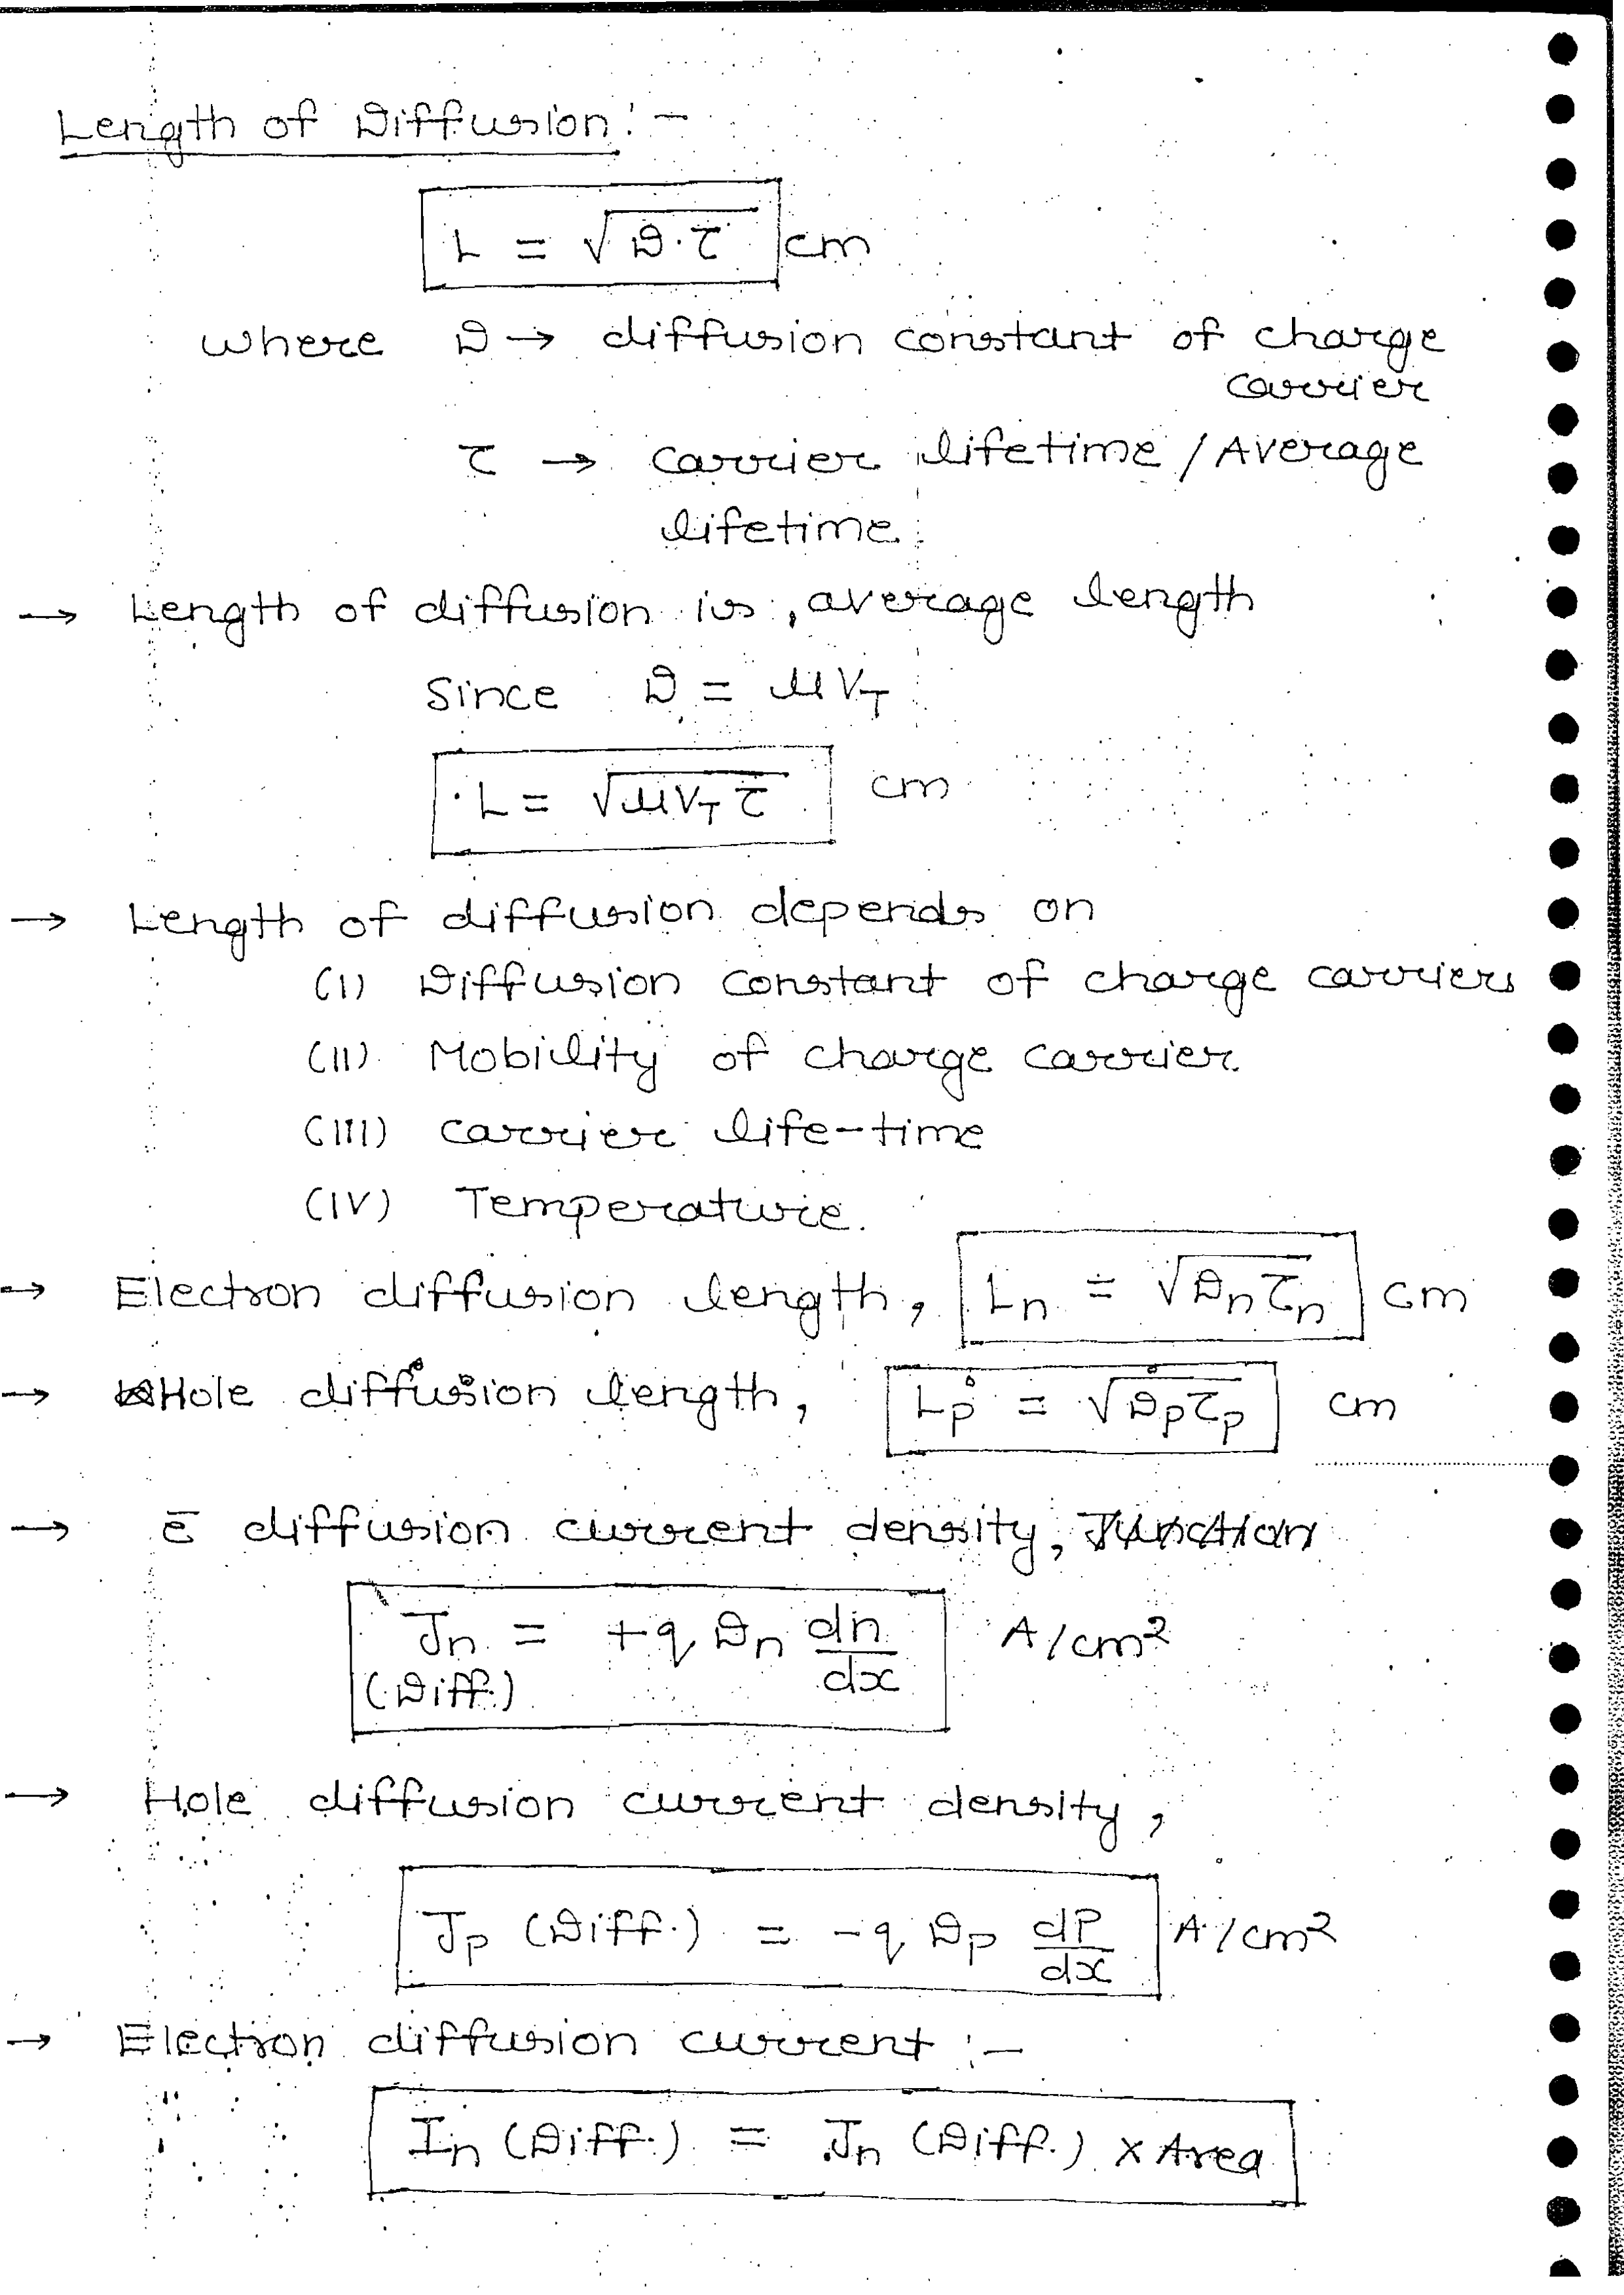 Length of Diffusion :-
L = √D·τ cm
where D → diffusion constant of charge
carrier
τ → carrier lifetime / Average
lifetime
→ Length of diffusion is, average length
Since D = μV_T
L = √μV_T τ cm
→ Length of diffusion depends on
(I) Diffusion constant of charge carriers
(II) Mobility of charge carrier
(III) carrier life-time
(IV) Temperature.
→ Electron diffusion length, L_n = √D_n τ_n cm
→ Hole diffusion length, L_p = √D_p τ_p cm
→ ē diffusion current density, Junction
J_n (Diff.) = +q D_n dn/dx A/cm²
→ Hole diffusion current density,
J_p (Diff.) = -q D_p dP/dx A/cm²
→ Electron diffusion current :-
I_n (Diff.) = J_n (Diff.) × Area